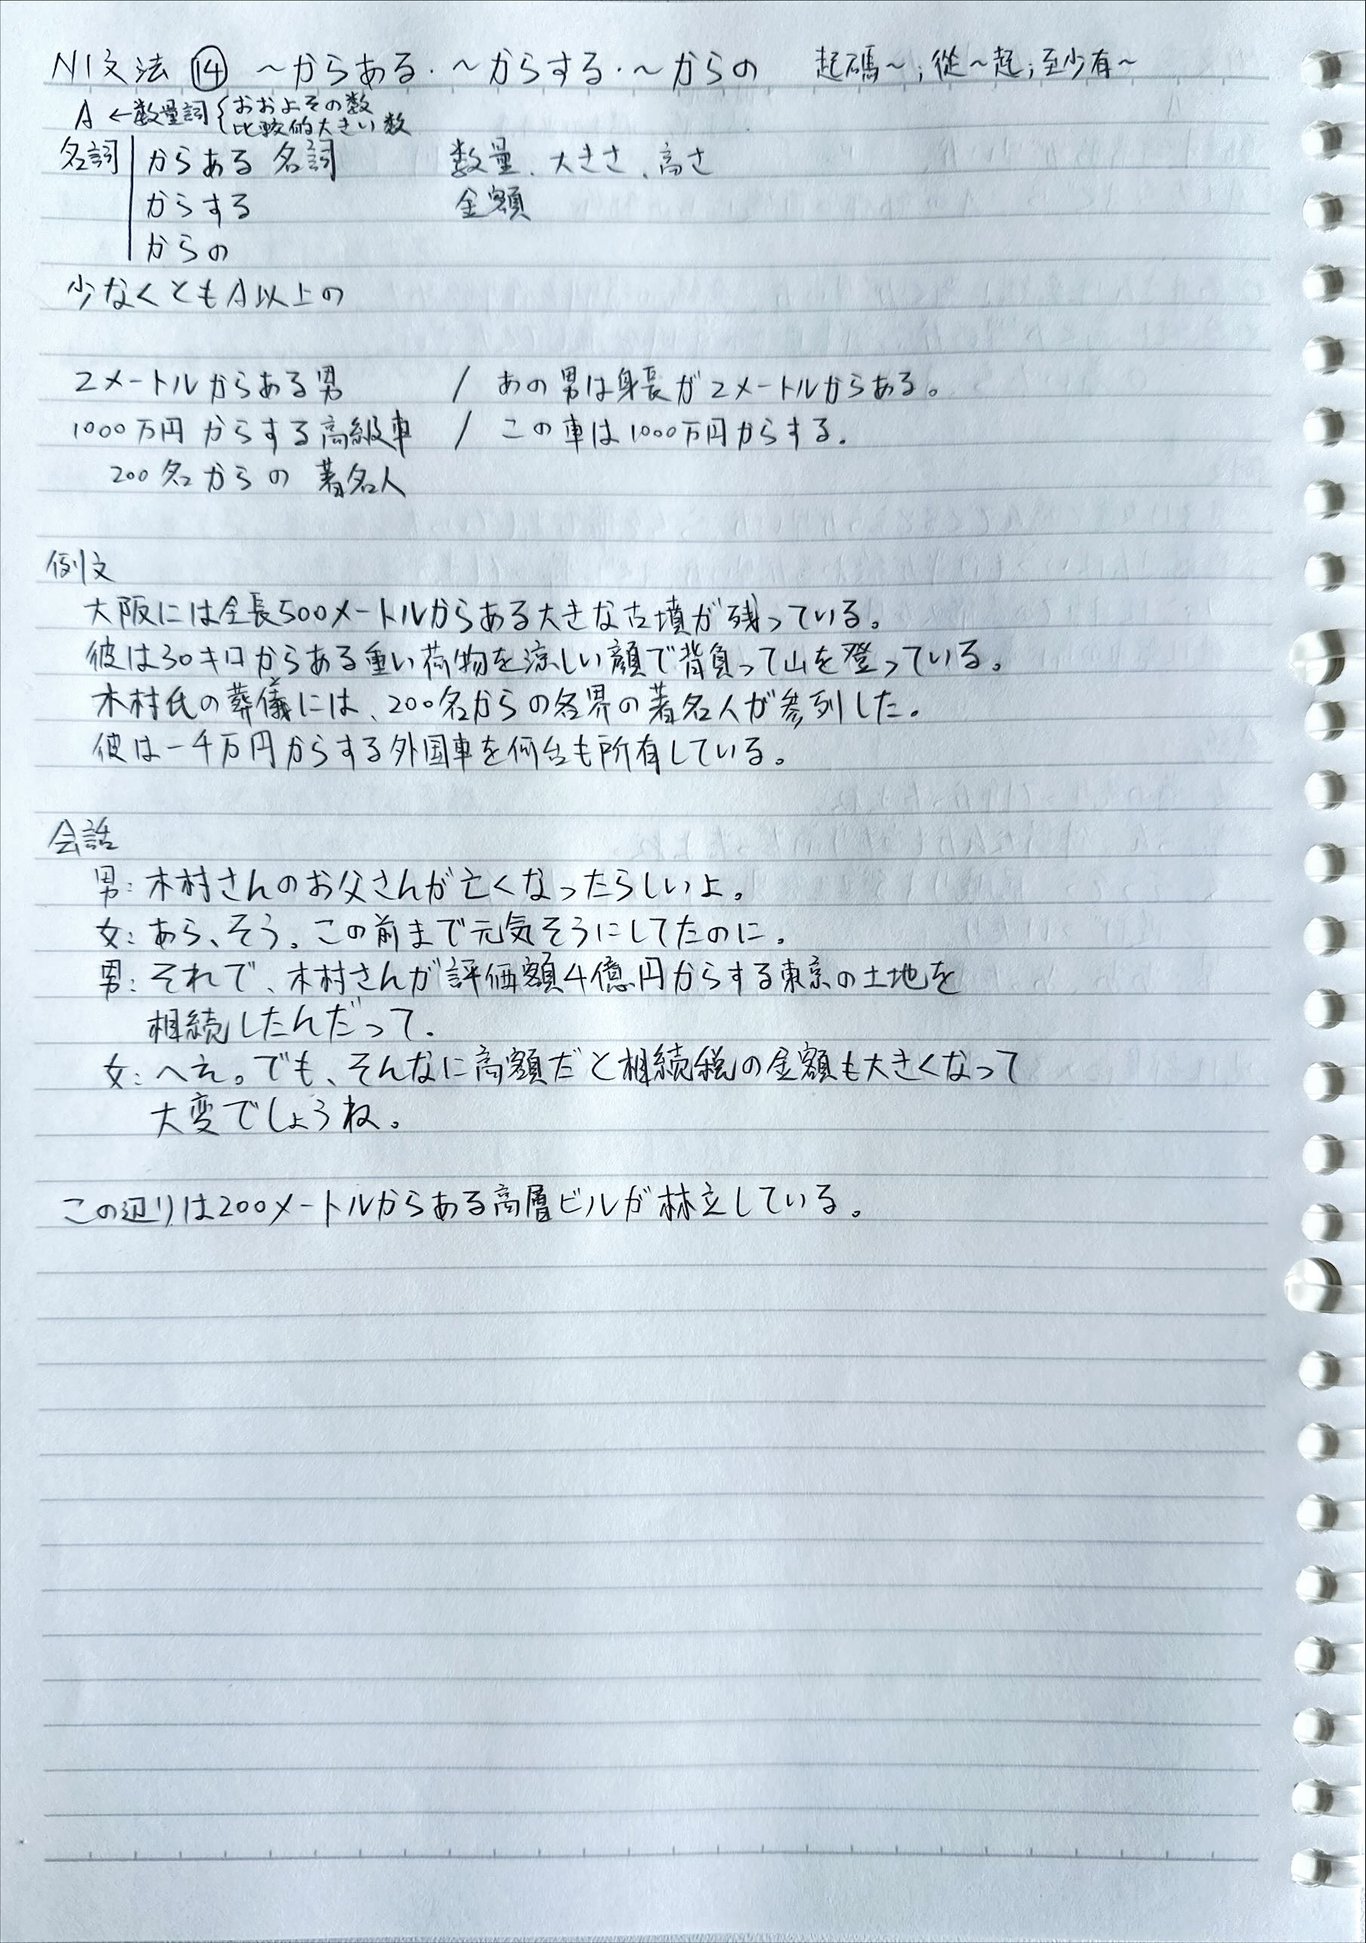 N1文法 ⑭ ～からある・～からする・～からの 起碼～；從～起；至少有～
A ←数量詞{おおよその数
比較的大きい数
名詞 からある 名詞 数量、大きさ、高さ
からする 金額
からの
少なくともA以上の
2メートルからある男 / あの男は身長が2メートルからある。
1000万円からする高級車 / この車は1000万円からする。
200名からの著名人
例文
大阪には全長500メートルからある大きな古墳が残っている。
彼は30キロからある重い荷物を涼しい顔で背負って山を登っている。
木村氏の葬儀には、200名からの各界の著名人が参列した。
彼は一千万円からする外国車を何台も所有している。
会話
男：木村さんのお父さんが亡くなったらしいよ。
女：あら、そう。この前まで元気そうにしてたのに。
男：それで、木村さんが評価額4億円からする東京の土地を
相続したんだって。
女：へえ。でも、そんなに高額だと相続税の金額も大きくなって
大変でしょうね。
この辺りは200メートルからある高層ビルが林立している。